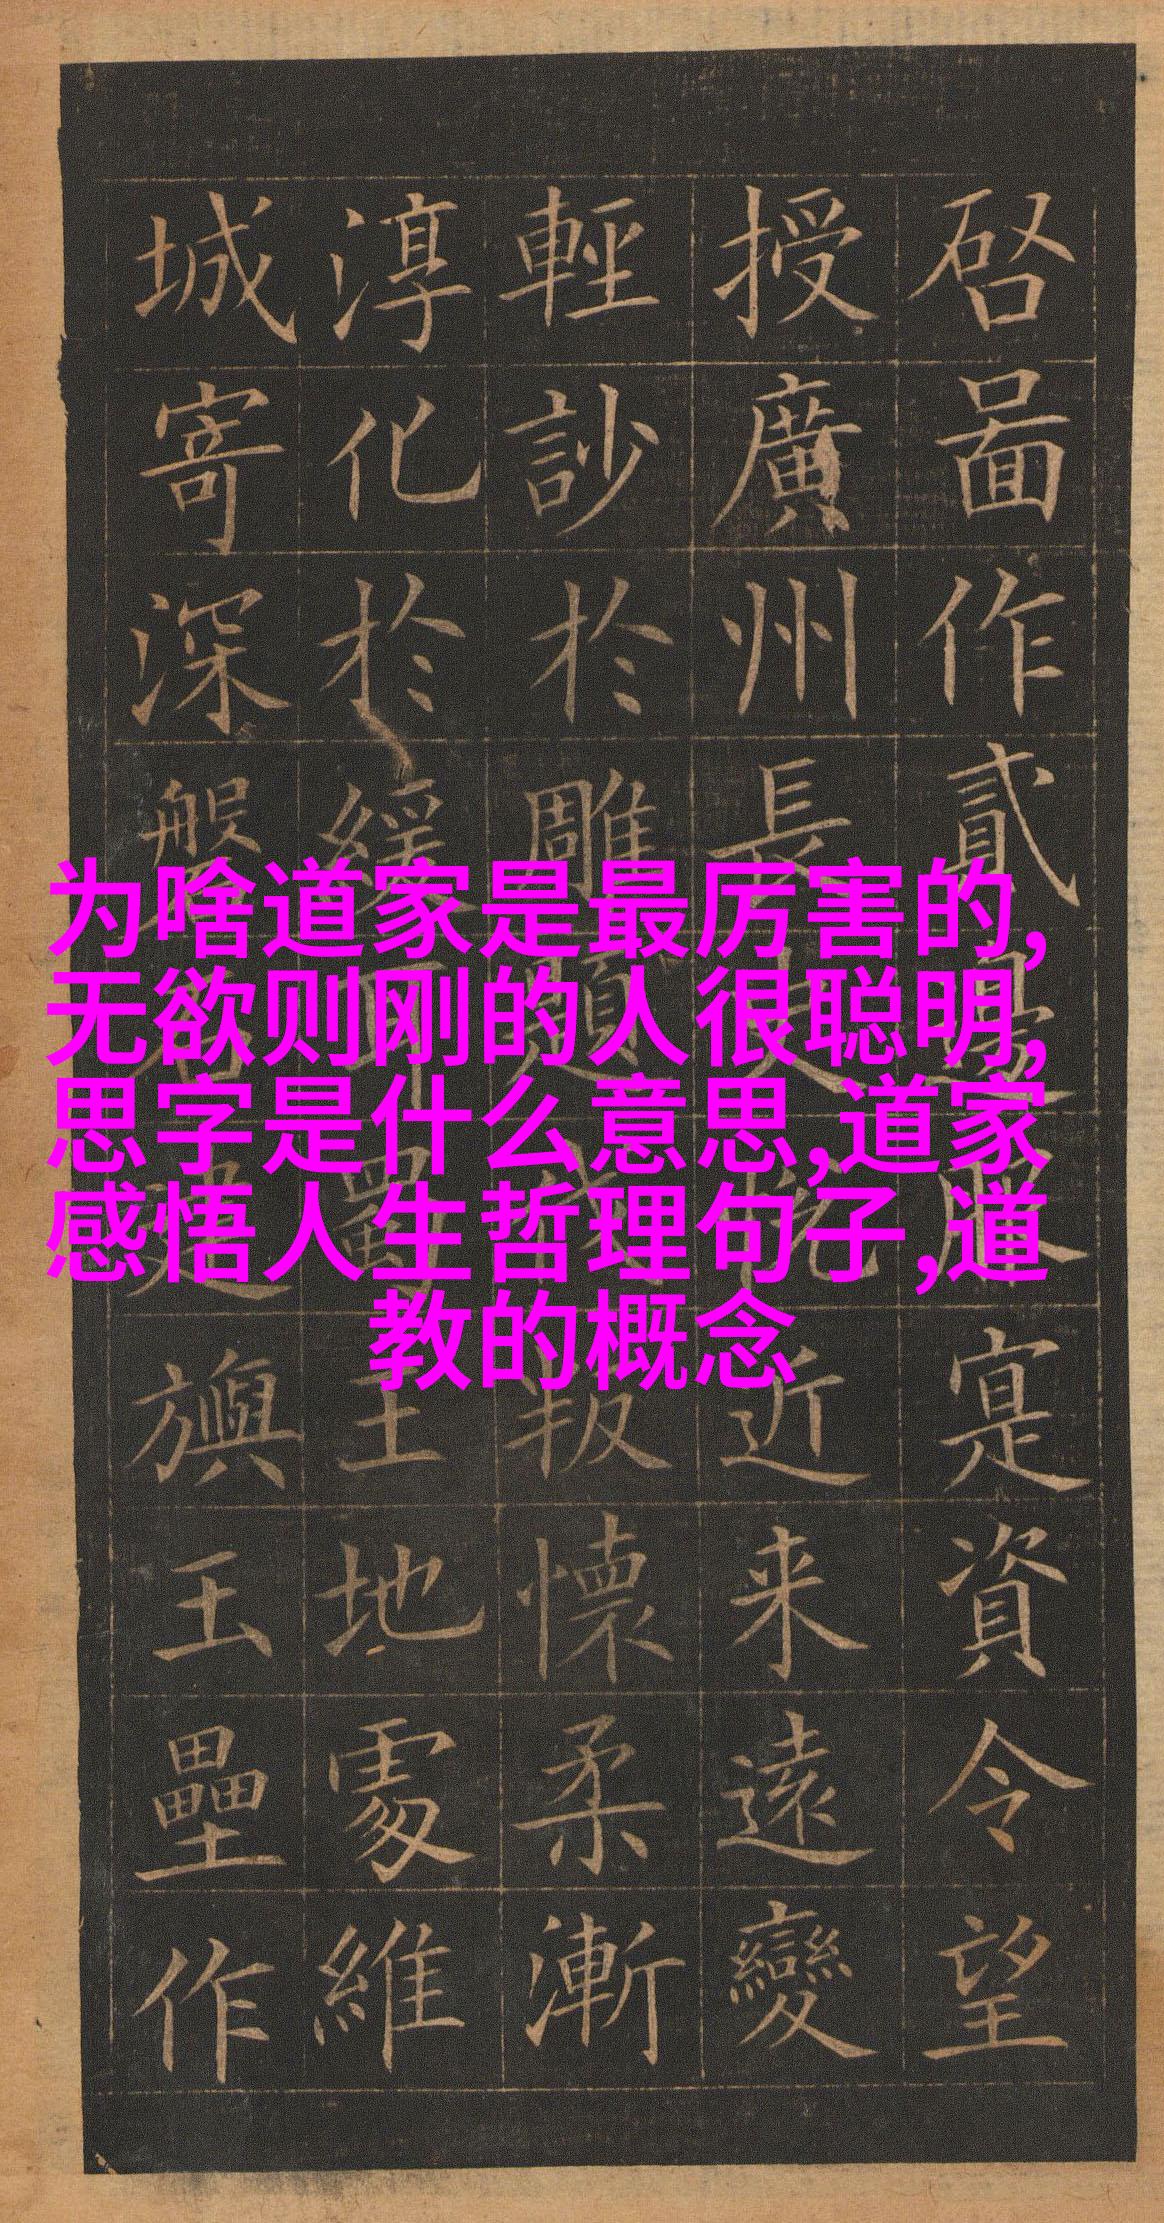 为啥道家是最厉害的,
无欲则刚的人很聪明,
思字是什么意思,道家
感悟人生哲理句子,道
教的概念
啚作貳寔資令望
授廣州長近来遠變
輕訬於雕題叛懷柔漸
淳化於緩耳蜀王地處維
城寄深磐石建旟玉壘作